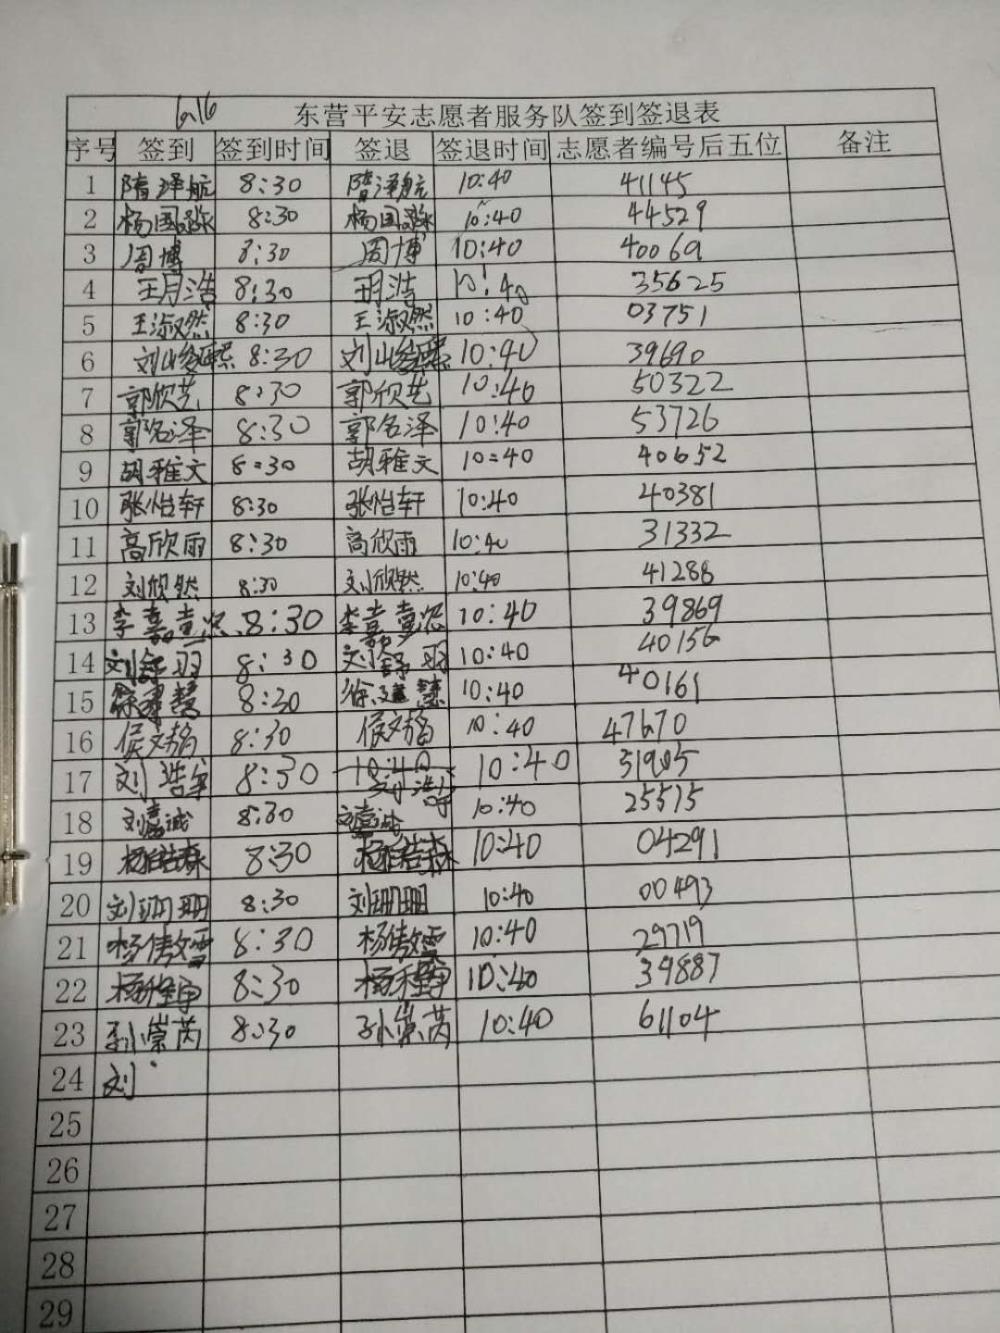 6.16 东营平安志愿者服务队签到签退表
序号 签到 签到时间 签退 签退时间 志愿者编号后五位 备注
1 隋泽航 8:30 隋泽航 10:40 41145
2 杨国 8:30 杨国 10:40 44529
3 周博 8:30 周博 10:40 40069
4 王月浩 8:30 王月浩 10:40 35625
5 王淑然 8:30 王淑然 10:40 03751
6 刘山 8:30 刘山 10:40 39690
7 郭欣艺 8:30 郭欣艺 10:40 50322
8 郭名泽 8:30 郭名泽 10:40 53726
9 胡雅文 8:30 胡雅文 10:40 40652
10 张怡轩 8:30 张怡轩 10:40 40381
11 高欣雨 8:30 高欣雨 10:40 31332
12 刘欣然 8:30 刘欣然 10:40 41286
13 李嘉 8:30 李嘉 10:40 39869
14 刘舒羽 8:30 刘舒羽 10:40 40156
15 徐建慧 8:30 徐建慧 10:40 40161
16 侯文 8:30 侯文 10:40 47670
17 刘浩宇 8:30 刘浩宇 10:40 31905
18 刘嘉诚 8:30 刘嘉诚 10:40 25515
19 杨皓森 8:30 杨皓森 10:40 04291
20 刘珊珊 8:30 刘珊珊 10:40 00493
21 杨傲雪 8:30 杨傲雪 10:40 29719
22 杨 8:30 杨 10:40 39887
23 孙崇芮 8:30 孙崇芮 10:40 61104
24 刘
25
26
27
28
29